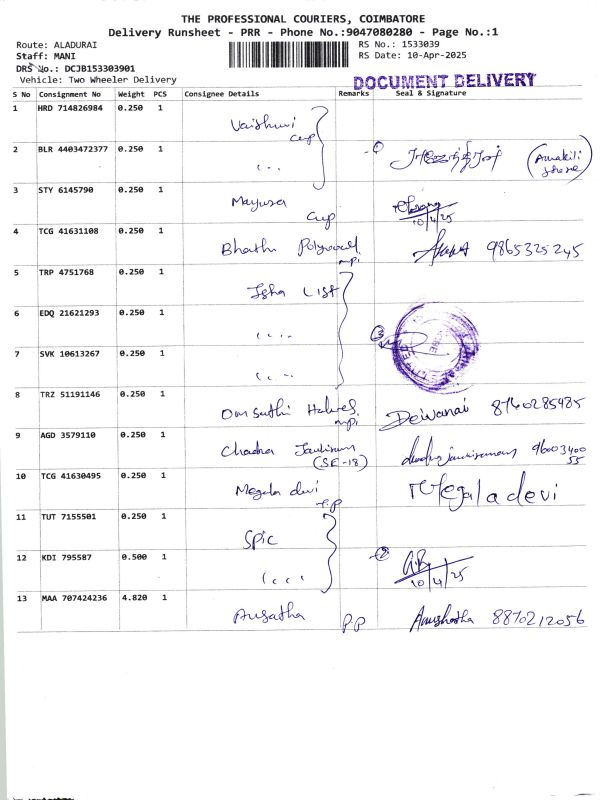 THE PROFESSIONAL COURIERS, COIMBATORE
Delivery Runsheet - PRR - Phone No.:9047080280 - Page No.:1
Route: ALADURAI
Staff: MANI
DRS No.: DCJB153303901
Vehicle: Two Wheeler Delivery
RS No.: 1533039
RS Date: 10-Apr-2025
DOCUMENT DELIVERY
S No Consignment No Weight PCS Consignee Details Remarks Seal & Signature
1 HRD 714826984 0.250 1
2 BLR 4403472377 0.250 1
3 STY 6145790 0.250 1 Mayura cup 10/4/25
4 TCG 41631108 0.250 1 Bharthi 9865325245
5 TRP 4751768 0.250 1 Isha LIST
6 EDQ 21621293 0.250 1
7 SVK 10613267 0.250 1
8 TRZ 51191146 0.250 1 Deiwanai 8760285485
9 AGD 3579110 0.250 1 Chadra (SE-18) 9600340055
10 TCG 41630495 0.250 1 Megala devi Megala devi
11 TUT 7155501 0.250 1 SPIC
12 KDI 795587 0.500 1 10/4/25
13 MAA 707424236 4.820 1 Anusatha P.P Anushatha 8870212056